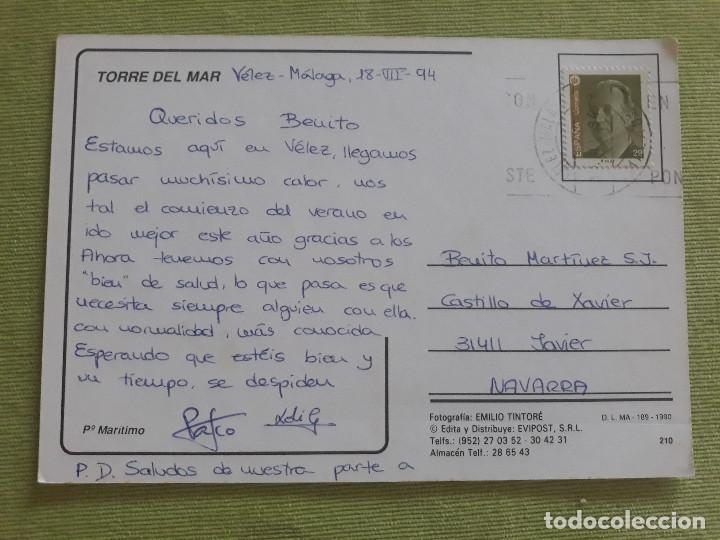 TORRE DEL MAR Vélez-Málaga, 18-VII-94
Queridos Benito
Estamos aquí en Vélez, llegamos
pasar muchísimo calor, nos
tal el comienzo del verano en
ido mejor este año gracias a los
Ahora tenemos con nosotros
"bien" de salud, lo que pasa es que
necesita siempre alguien con ella.
con normalidad, más conocida
Esperando que estéis bien y
un tiempo, se despiden
Pº Marítimo
P.D. Saludos de nuestra parte a
ESPAÑA
Correos
29
EN
STE
PON
Benito Martínez S.J.
Castillo de Xavier
31411 Javier
NAVARRA
Fotografía: EMILIO TINTORÉ
D. L. MA - 189 - 1990
© Edita y Distribuye: EVIPOST, S.R.L.
Telfs.: (952) 27 03 52 - 30 42 31
210
Almacén Telf.: 28 65 43
todocoleccion.net